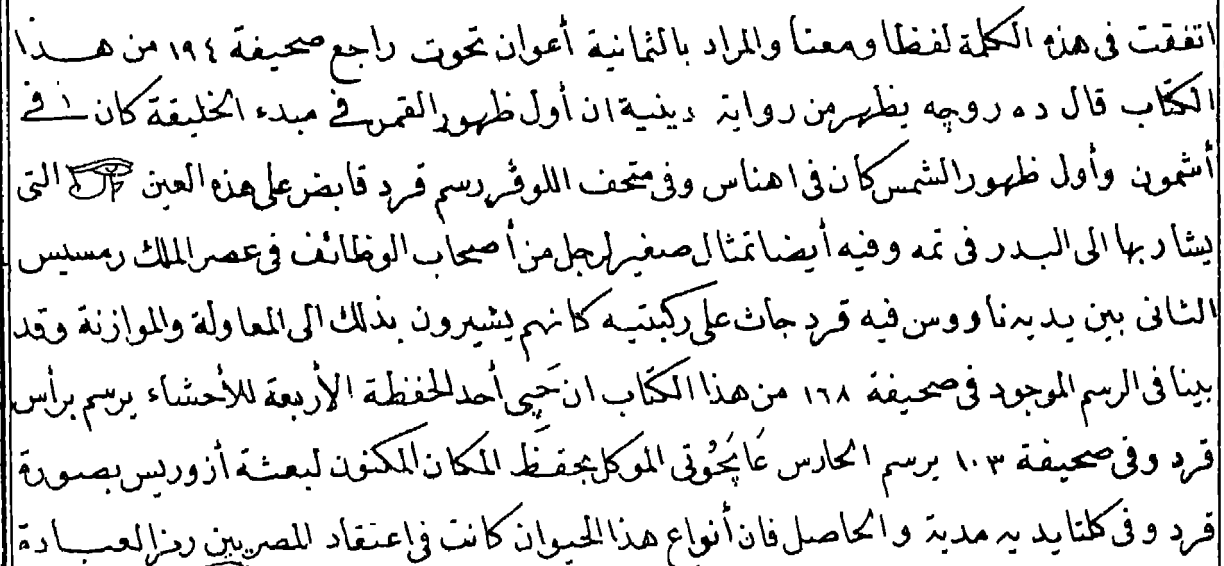 اتفقت فى هذه الكلمة لفظا ومعنا والمراد بالثمانية أعوان تحوت راجع صحيفة ١٩٤ من هـذا
الكتاب قال ده روچه يظهر من رواية دينية ان أول ظهور القمر فى مبدء الخليقة كان فى
أشمون وأول ظهور الشمس كان فى اهناس وفى متحف اللوڤر رسم قرد قابض على هذه العين التى
يشار بها الى البدر فى تمه وفيه أيضا تمثال صغير لرجل من أصحاب الوظائف فى عصر الملك رمسيس
الثانى بين يديه ناووس فيه قرد جاث على ركبتيه كانهم يشيرون بذلك الى المعاولة والموازنة وقد
بينا فى الرسم الموجود فى صحيفة ١٦٨ من هذا الكتاب ان حَپى أحد الحفظة الأربعة للأحشاء يرسم برأس
قرد وفى صحيفة ١٠٣ يرسم الحارس الموكل بحفظ المكان المكنون لبعثة أزوريس بصورة
قرد وفى كلتا يديه مدية والحاصل فان أنواع هذا الحيوان كانت فى اعتقاد المصريين رمز العبـادة